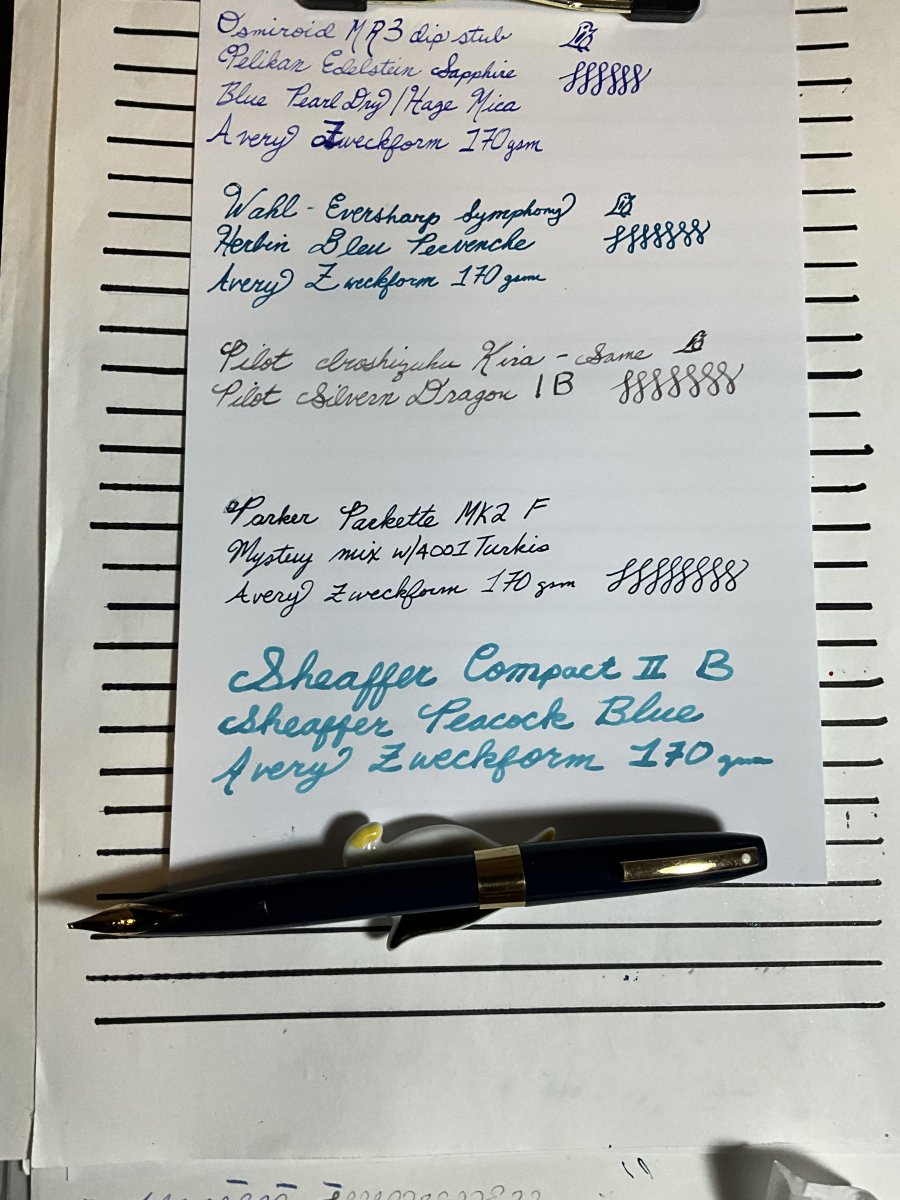 Osmiroid MR3 dip stub
Pelikan Edelstein Sapphire
Blue Pearl Dry/Hage Mica
Avery Zweckform 170 gsm
Wahl-Eversharp Symphony
Herbin Bleu Pervenche
Avery Zweckform 170 gsm
Pilot Iroshizuku Kira - Same
Pilot Silvern Dragon 1B
Parker Parkette MK2 F
Mystery mix w/4001 Turkis
Avery Zweckform 170 gsm
Sheaffer Compact II B
Sheaffer Peacock Blue
Avery Zweckform 170 gsm